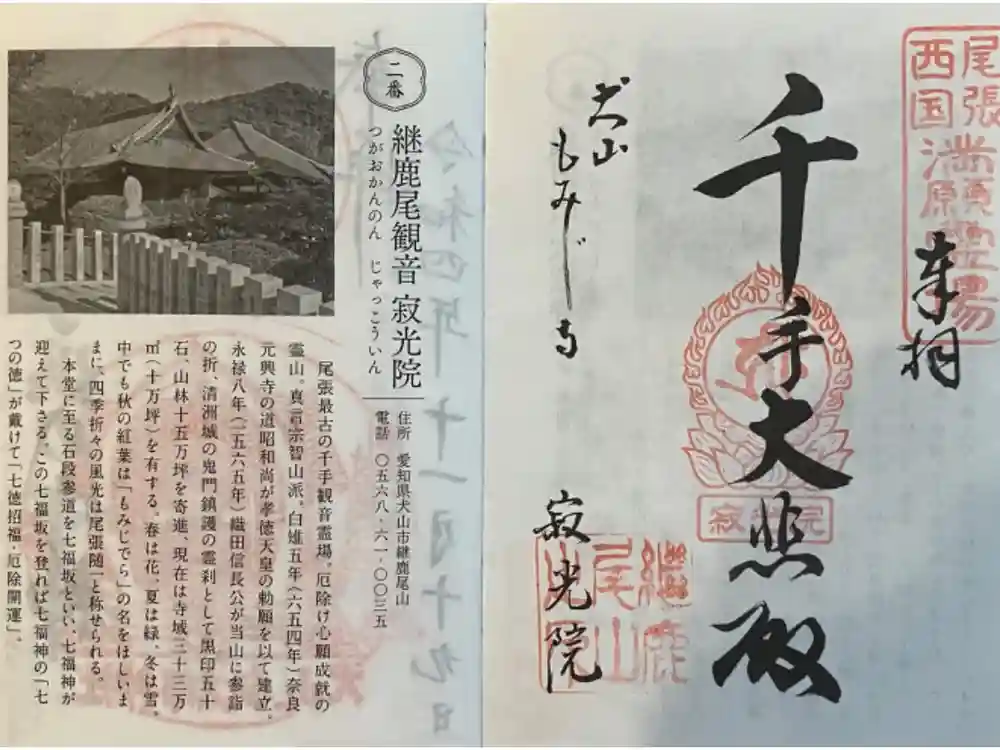 二番
継鹿尾観音 寂光院
つがおかんのん じゃっこういん
住所 愛知県犬山市継鹿尾山
電話 〇五六八‐六一‐〇〇三五
尾張最古の千手観音霊場。厄除け心願成就の
霊山。真言宗智山派。白雉五年〈六五四年〉奈良
元興寺の道昭和尚が孝徳天皇の勅願を以て建立。
永禄八年〈一五六五年〉織田信長公が当山に参詣
の折、清洲城の鬼門鎮護の霊刹として黒印五十
石、山林十五万坪を寄進、現在は寺域三十三万
㎡〈十万坪〉を有する。春は花、夏は緑、冬は雪。
中でも秋の紅葉は「もみじでら」の名をほしいま
まに、四季折々の風光は尾張随一と称せられる。
本堂に至る石段参道を七福坂といい、七福神が
迎えて下さる。この七福坂を登れば七福神の「七
つの徳」が戴けて「七徳招福・厄除開運」。
令和四年十一月十九日
尾張
西国
満願霊場
奉拝
千手大悲殿
寂光院
犬山
もみじ寺
寂光院
継鹿
尾山